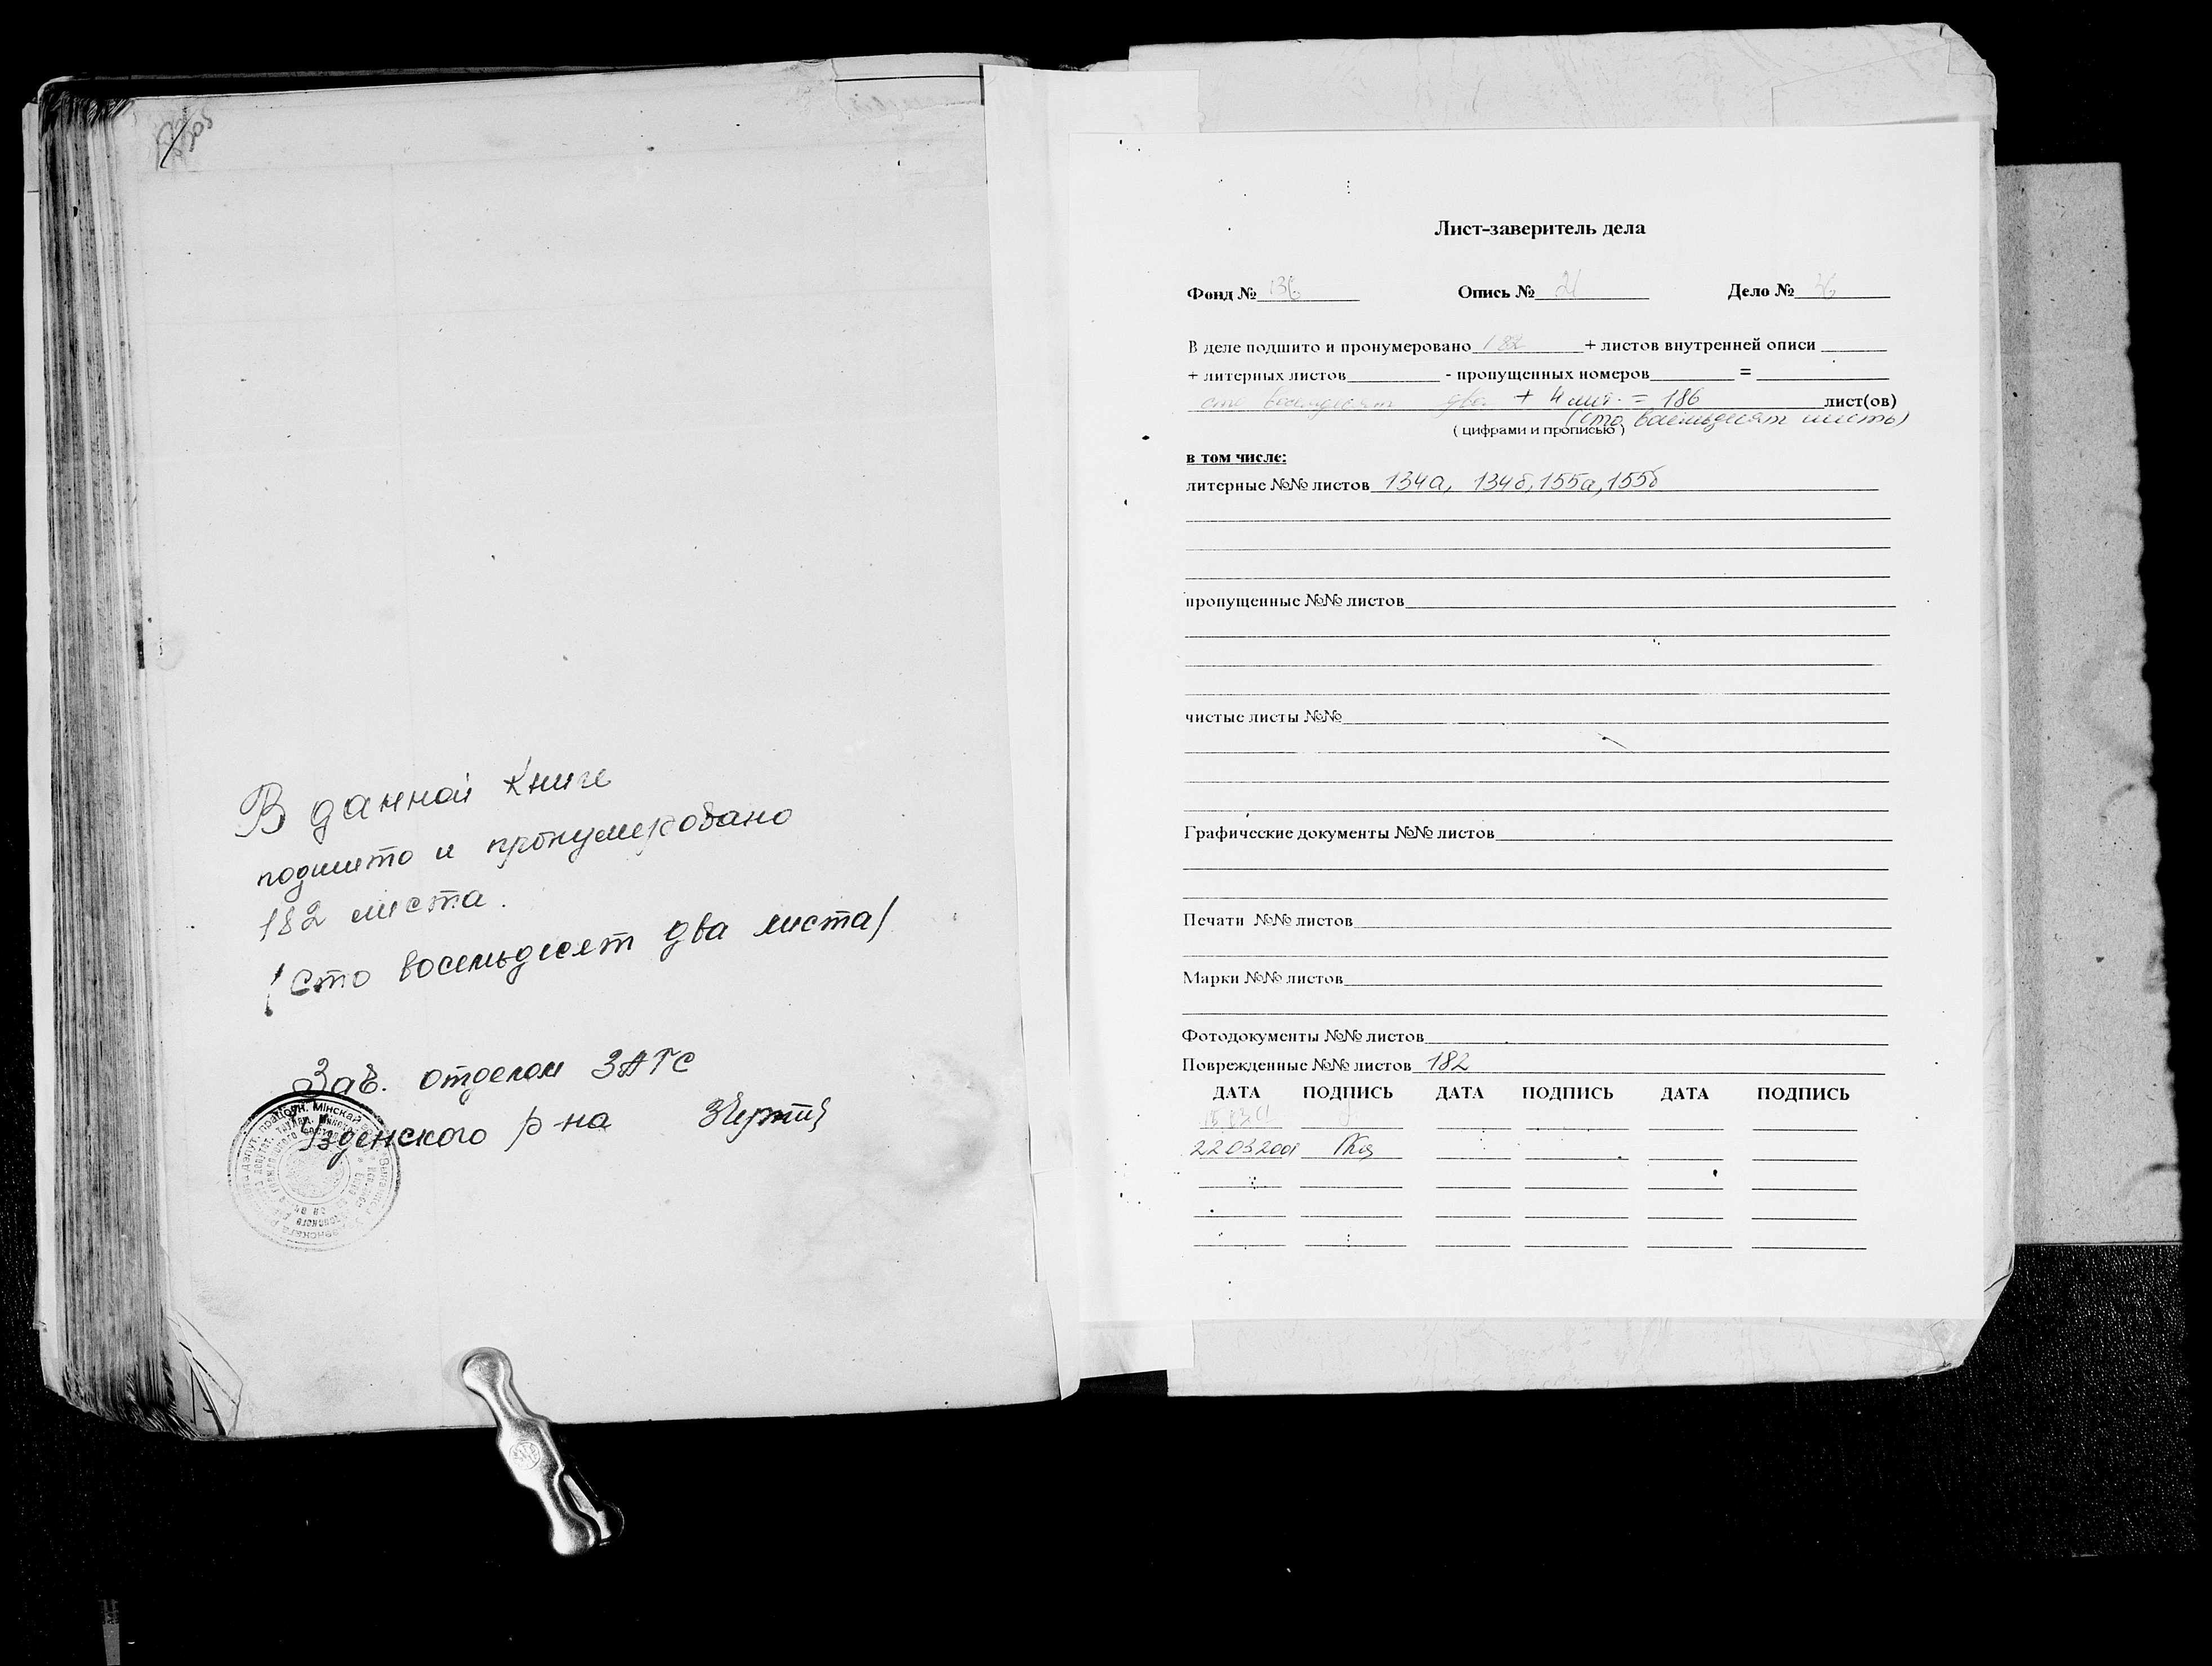 В данной книге
подшито и пронумеровано
182 листа.
(Сто восемьдесят два листа)
Зав. отделом ЗАГС
Узденского р-на
Лист-заверитель дела
Фонд № 136 Опись № 21 Дело № 36
В деле подшито и пронумеровано 182 + листов внутренней описи
+ литерных листов - пропущенных номеров =
сто восемьдесят два + 4 лит. = 186 лист(ов)
(сто восемьдесят шесть)
( цифрами и прописью )
в том числе:
литерные №№ листов 134а, 134б, 155а, 155б
пропущенные №№ листов
чистые листы №№
Графические документы №№ листов
Печати №№ листов
Марки №№ листов
Фотодокументы №№ листов
Поврежденные №№ листов 182
ДАТА ПОДПИСЬ ДАТА ПОДПИСЬ ДАТА ПОДПИСЬ
22.03.2001